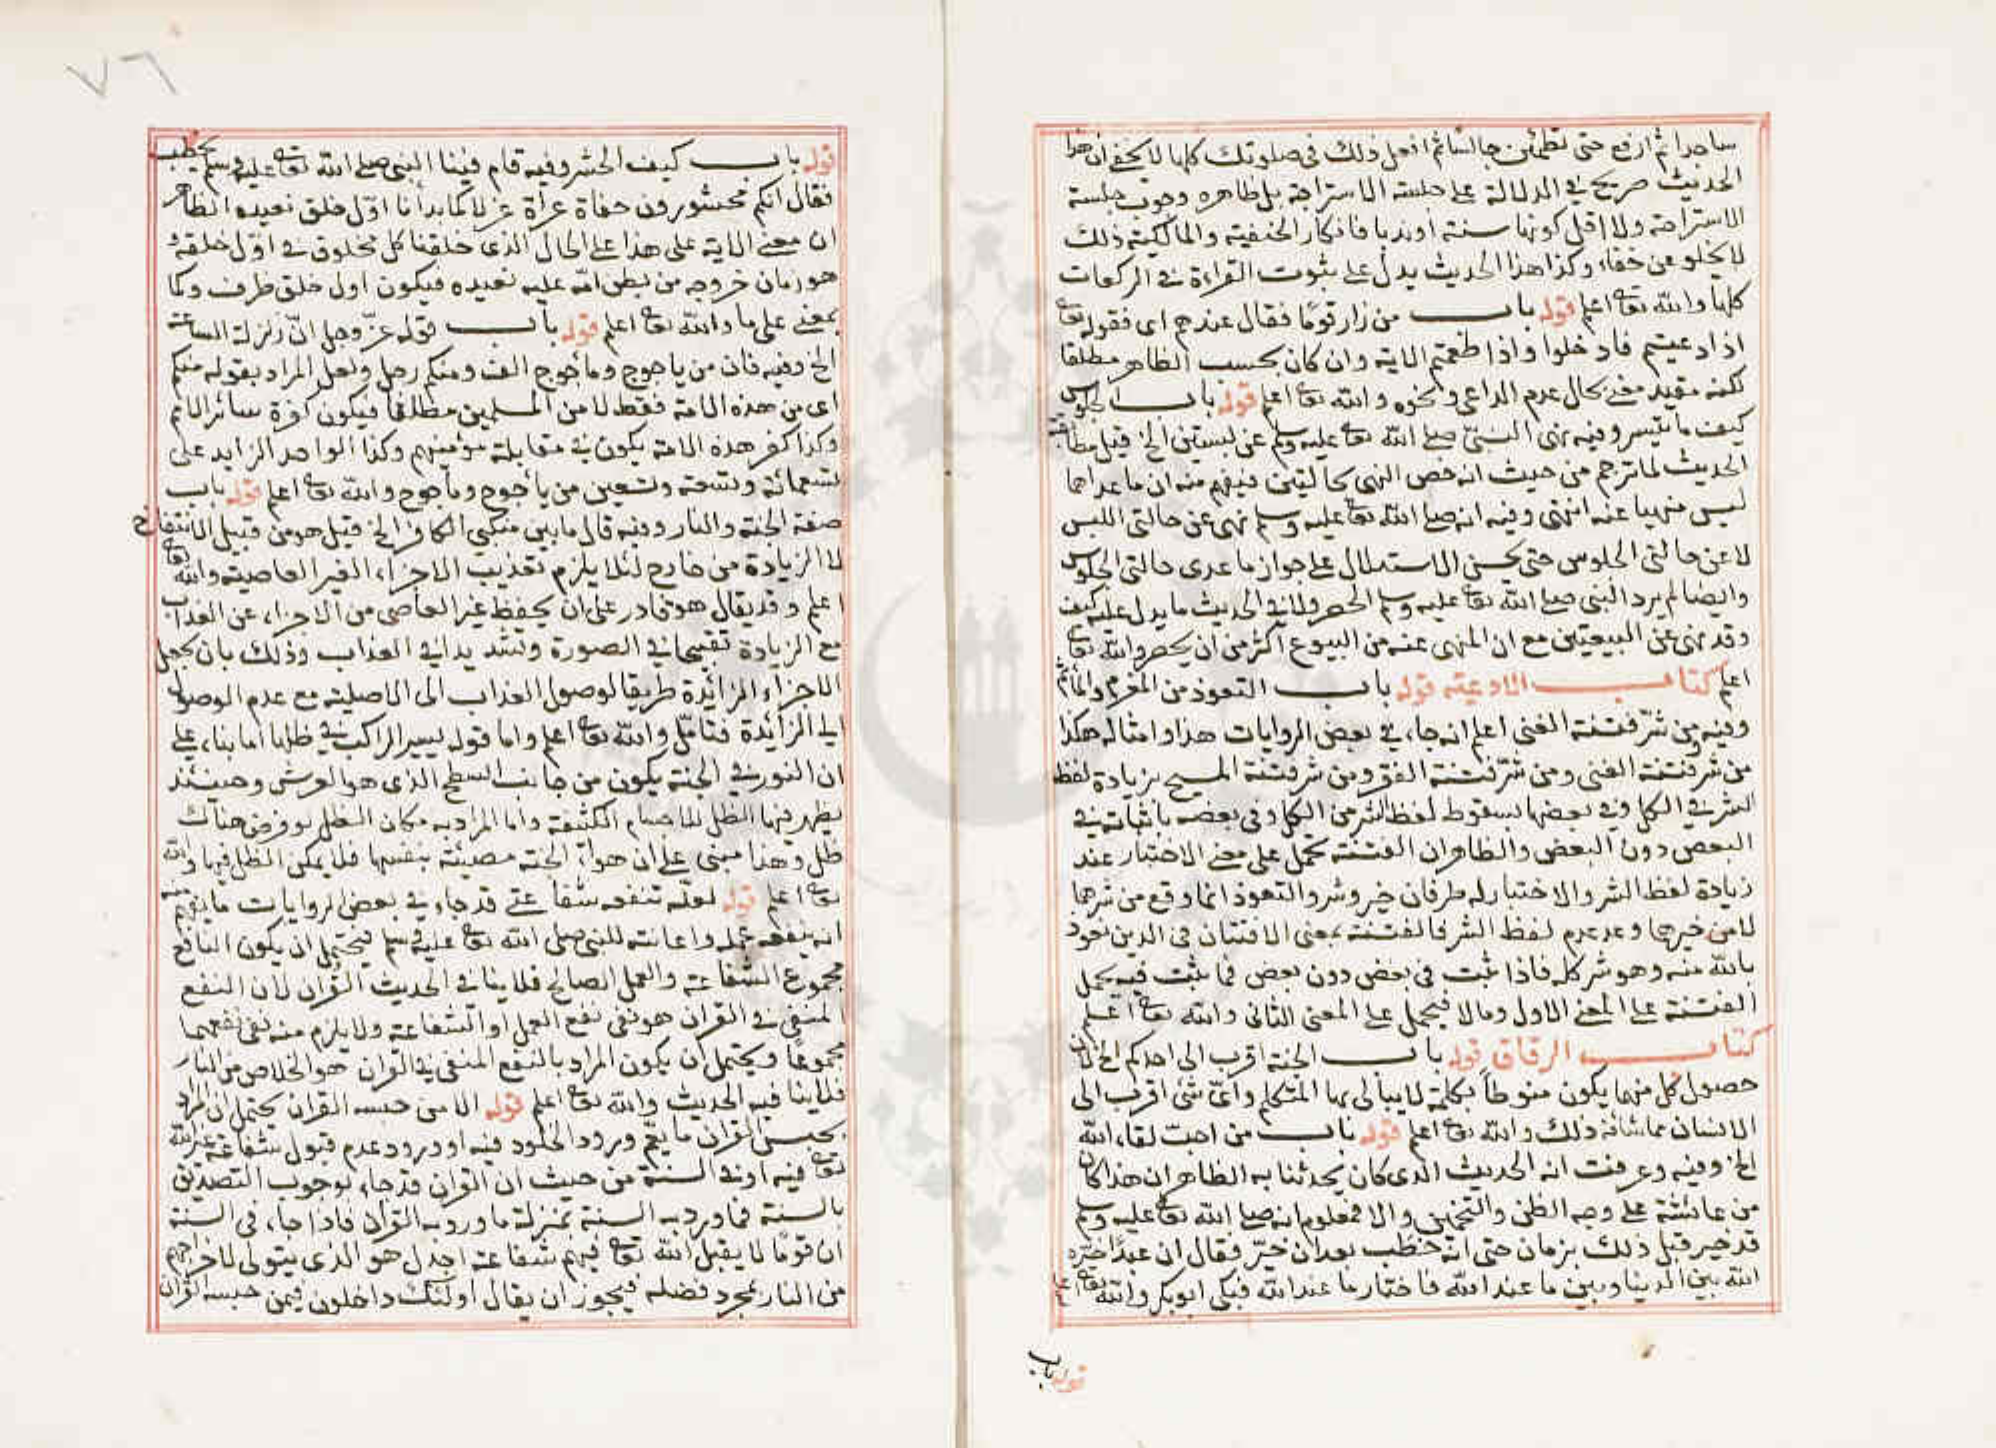 ساجدا ثم ارفع حتى تطمئن جالسا ثم افعل ذلك في صلوتك كلها لا يخفى ان هذا
الحديث صريح في الدلالة على جلسة الاستراحة بل ظاهره وجوب جلسة
الاستراحة ولا اقل كونها سنة او ندبا فانكار الحنفية والمالكية ذلك
لا يخلو عن خفاء وكذا هذا الحديث يدل على ثبوت القراءة في الركعات
كلها والله تعا اعلم قوله باب من زار قوما فقال عندهم اى فقوله تعا
اذا دعيتم فادخلوا واذا طعمتم الاية وان كان بحسب الظاهر مطلقا
لكنه مقيد معنى بحال عدم الداعى ونحوه والله تعا اعلم قوله باب الجلوس
كيف ما تيسر وفيه نهى النبي صلى الله تعا عليه وسلم عن لبستين الخ قيل مطابقة
الحديث لما ترجم من حيث انه خص النهى بحالتين فيفهم منه ان ما عداهما
ليس منهيا عنه انتهى وفيه انه صلى الله تعا عليه وسلم نهى عن حالتى اللبس
لا عن حالتى الجلوس حتى يحسن الاستدلال على جواز ما عدى حالتى الجلوس
وايضا لم يرد النبي صلى الله تعا عليه وسلم الحصر ولا في الحديث ما يدل عليه كيف
وقد نهى عن البيعتين مع ان المنهى عنه من البيوع اكثر من ان يحصر والله تعا
اعلم كتاب الادعية قوله باب التعوذ من المغرم والمأثم
وفيه من شر فتنة الغنى اعلم انه جاء في بعض الروايات هذا وامثاله هكذا
من شر فتنة الغنى ومن شر فتنة الفقر ومن شر فتنة المسيح بزيادة لفظ
الشر في الكل وفي بعضها بسقوط لفظ الشر من الكل وفي بعضه باثباته في
البعض دون البعض والظاهر ان الفتنة تحمل على معنى الاختبار عند
زيادة لفظ الشر والاختبار له طرفان خير وشر والتعوذ انما وقع من شرهما
لا من خيرهما وعد عدم لفظ الشر فالفتنة بمعنى الافتتان في الدين نعوذ
بالله منه وهو شر كله فاذا ثبت في بعض دون بعض فما ثبت فيه يحمل
الفتنة على المعنى الاول وما لا فيحمل على المعنى الثانى والله تعا اعلم
كتاب الرقاق قوله باب الجنة اقرب الى احدكم الخ لان
حصول كل منهما يكون منوطا بكلمة لا يبالى بها المتكلم واى شئ اقرب الى
الانسان مما شانه ذلك والله تعا اعلم قوله باب من احب لقاء الله
الخ وفيه وعرفت انه الحديث الذى كان يحدثنا به الظاهر ان هذا كان
من عائشة على وجه الظن والتخمين والا فمعلوم انه صلى الله تعا عليه وسلم
قد خير قبل ذلك بزمان حتى انه خطب بعد ان خير فقال ان عبدا خيره
الله بين الدنيا وبين ما عند الله فاختار ما عند الله فبكى ابو بكر والله تعا اعلم
قوله باب
٧٦
قوله باب كيف الحشر وفيه قام فينا النبي صلى الله تعا عليه وسلم يخطب
فقال انكم محشورون حفاة عراة غرلا كما بدأنا اول خلق نعيده الظاهر
ان معنى الاية على هذا على الحال الذى خلقنا كل مخلوق في اول خلقه و
هو زمان خروجه من بطن امه عليه نعيده فيكون اول خلق ظرف وكما
بمعنى على ما والله تعا اعلم قوله باب قوله عز وجل ان زلزلة الساعة
الخ وفيه فان من ياجوج ومأجوج الف ومنكم رجل ولعل المراد بقوله منكم
اى من هذه الامة فقط لا من المسلمين مطلقا فيكون كفرة سائر الامم
وكذا كفر هذه الامة يكون في مقابلة مؤمنهم وكذا الواحد الزايد على
تسعمائة وتسعة وتسعين من يأجوج ومأجوج والله تعا اعلم قوله باب
صفة الجنة والنار وفيه قال ما بين منكبى الكافر الخ قيل هو من قبيل الانتفاخ
لا الزيادة من خارج لئلا يلزم تعذيب الاجزاء الغير العاصية والله تعا
اعلم وقد يقال هو قادر على ان يحفظ غير العاصى من الاجزاء عن العذاب
مع الزيادة تقبيحا في الصورة وتشديدا في العذاب وذلك بان يجعل
الاجزاء الزائدة طريقا لوصول العذاب الى الاصلية مع عدم الوصول
الى الزائدة فتأمل والله تعا اعلم واما قوله يسير الراكب في ظلها اما بناء على
ان النور في الجنة يكون من جانب السطح الذى هو العرش وحينئذ
يظهر فيها الظل للاجسام الكثيفة واما المراد به مكان الظل لو فرض هناك
ظل وهذا مبنى على ان هواء الجنة مضيئة بنفسها فلا يمكن الظل فيها والله
تعا اعلم قوله لعله تنفعه شفاعتى قد جاء في بعض الروايات ما يفهم
انه ينفعه عمله واعانته للنبي صلى الله تعا عليه وسلم فيحتمل ان يكون النافع
مجموع الشفاعة والعمل الصالح فلا ينافى الحديث القرآن لان النفع
المنفى في القران هو نفى نفع العمل او الشفاعة ولا يلزم منه نفى نفعهما
مجموعا ويحتمل ان يكون المراد بالنفع المنفى في القران هو الخلاص من النار
فلا ينافيه الحديث والله تعا اعلم قوله الا من حبسه القران يحتمل ان المراد
بحبس القران ما يعم ورود الخلود فيه او ورود عدم قبول شفاعة غير الله
تعا فيه او في السنة من حيث ان القران قد جاء بوجوب التصديق
بالسنة فما ورد به السنة بمنزلة ما ورد به القرآن فاذا جاء في السنة
ان قوما لا يقبل الله تعا فيهم شفاعة احد بل هو الذى يتولى لاخراجهم
من النار بمجرد فضله فيجوز ان يقال اولئك داخلون فيمن حبسه القران